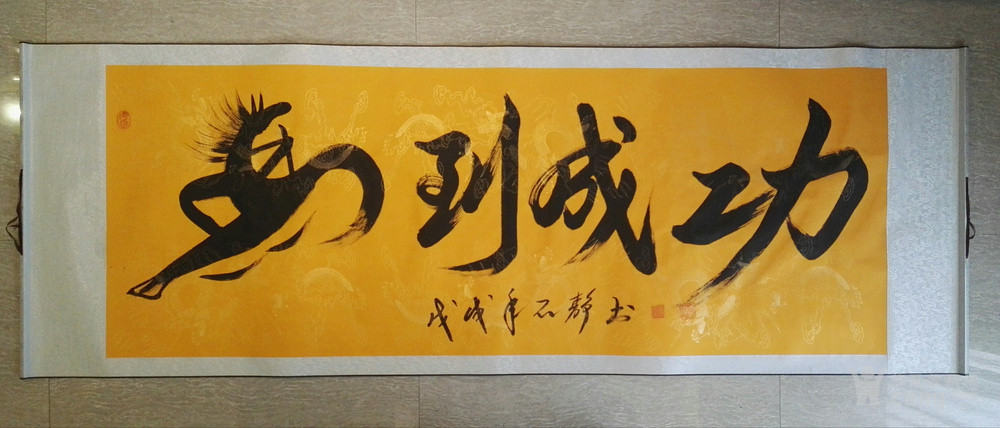 马到成功
戊戌年石静书